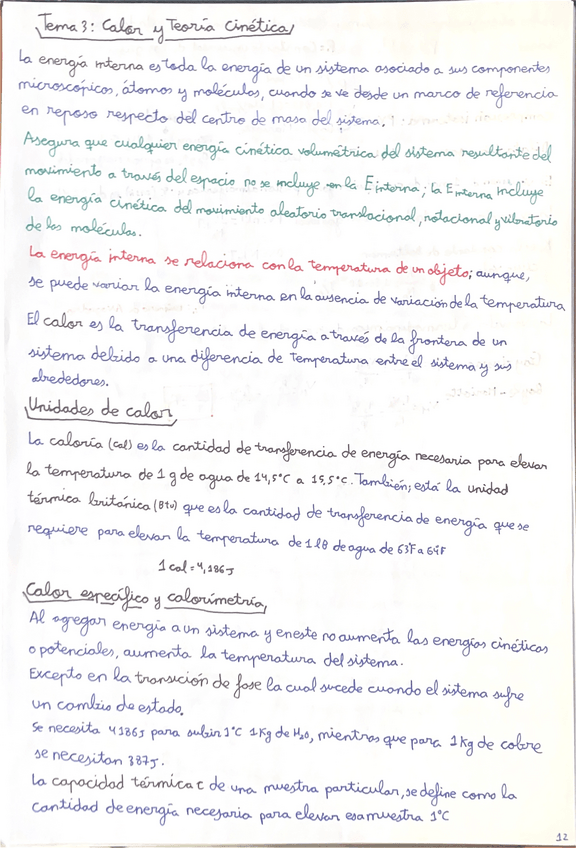 Tema 3: Calor y Teoría Cinética
La energía interna es toda la energía de un sistema asociado a sus componentes
microscópicos, átomos y moléculas, cuando se ve desde un marco de referencia
en reposo respecto del centro de masa del sistema.
Asegura que cualquier energía cinética volumétrica del sistema resultante del
movimiento a través del espacio no se incluye en la E interna; la E interna incluye
la energía cinética del movimiento aleatorio translacional, rotacional y vibratorio
de las moléculas.
La energía interna se relaciona con la temperatura de un objeto; aunque,
se puede variar la energía interna en la ausencia de variación de la temperatura
El calor es la transferencia de energía a través de la frontera de un
sistema debido a una diferencia de temperatura entre el sistema y sus
alrededores.
Unidades de calor
La caloría (cal) es la cantidad de transferencia de energía necesaria para elevar
la temperatura de 1 g de agua de 14,5°C a 15,5°C. También; está la unidad
térmica británica (Btu) que es la cantidad de transferencia de energía que se
requiere para elevar la temperatura de 1 lb de agua de 63°F a 64°F
1 cal = 4,186 J
Calor específico y calorimetría
Al agregar energía a un sistema y en este no aumenta las energías cinéticas
o potenciales, aumenta la temperatura del sistema.
Excepto en la transición de fase la cual sucede cuando el sistema sufre
un cambio de estado.
Se necesita 4186 J para subir 1°C 1 Kg de H₂O, mientras que para 1 Kg de cobre
se necesitan 387 J.
La capacidad térmica C de una muestra particular, se define como la
cantidad de energía necesaria para elevar esa muestra 1°C
12